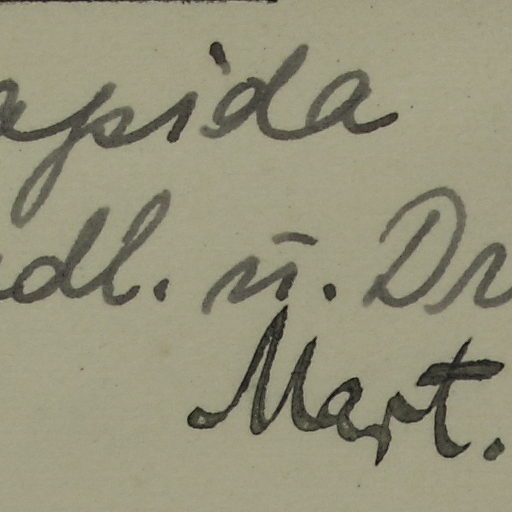 apida
dl. u. Dr
Mart.